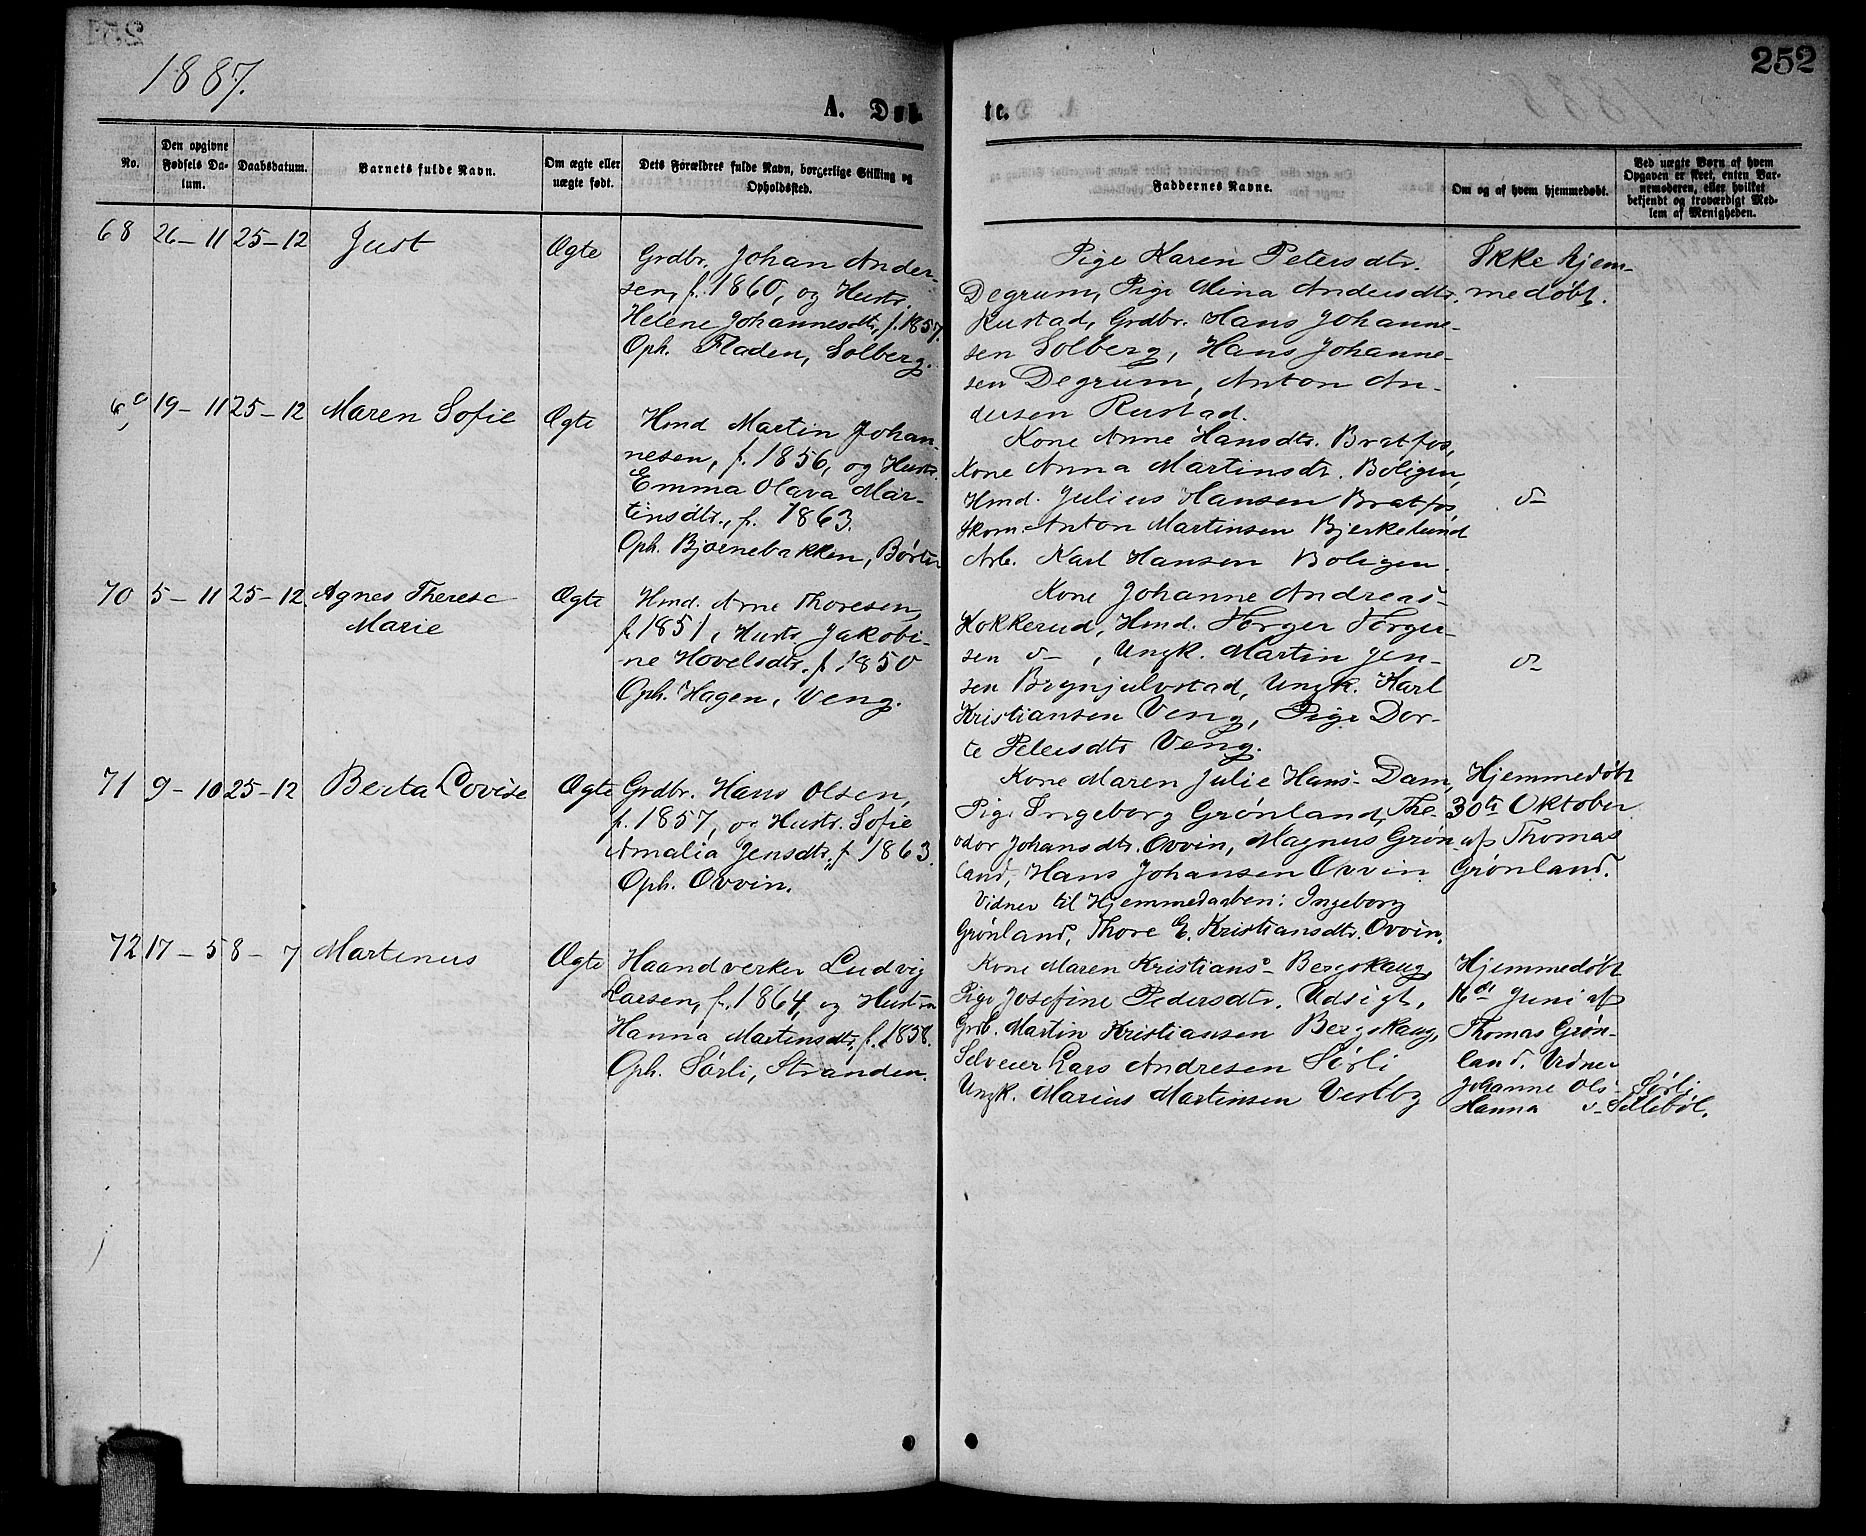 252
1887.
A. Døb
te.
No.
Den opgivne Fødsels Da-
tum.
Daabsdatum.
Barnets fulde Navn.
Om ægte eller
uægte født.
Dets Forældres fulde Navn, borgerlige Stilling og
Opholdssted.
Faddernes Navne.
Om og af hvem hjemmedøbt.
Ved uægte Børn af hvem
Opgaven er skeet, enten Bar-
nemoderen, eller hvilket
bekjendt og troværdigt Med-
lem af Menigheden.
68 26-11 25-12 Just Ægte
Grdbr. Johan Ander-
sen, f. 1860, og Hustr.
Helene Johannesdtr, f. 1857.
Oph. Fladen, Solberg.
Pige Karen Petersdtr.
Degrum, Pige Mina Andersdtr.
Rustad, Grdbr. Hans Johanne-
sen Solberg, Hans Johanne-
sen Degrum, Anton An-
dersen Rustad.
Ikke hjem-
medøbt.
69 19-11 25-12 Maren Sofie Ægte
Hmd Martin Johan-
nesen, f. 1856, og Hustr.
Emma Olava Mar-
tinsdtr., f. 1863.
Oph. Bjørnebakken, Børter
Kone Anne Hansdtr. Bratfos,
Kone Anna Martinsdtr. Boligen,
Hmd. Julius Hansen Bratfos,
Skom. Anton Martinsen Bjerkelund
Arb. Karl Hansen Boligen.
d-
70 5-11 25-12 Agnes Therese
Marie
Ægte
Hmd. Arne Thoresen,
f. 1851, Hustr. Jakobi-
ne Hovelsdtr. f. 1850
Oph. Hagen, Veng.
Kone Johanne Andreas-
Kokkerud, Hmd. Torger Torger-
sen d- , Ungk. Martin Jen-
sen Brynjulvstad, Ungk. Karl
Kristiansen Veng, Pige Dor-
te Petersdtr Veng.
d-
71 9-10 25-12 Berta Lovise Ægte
Grdbr. Hans Olsen,
f. 1857, og Hustr. Sofie
Amalia Jensdtr. f. 1863.
Oph. Ovvin.
Kone Maren Julie Hans- Dam,
Pige Ingeborg Grønland, The-
odor Johansdtr. Ovvin, Magnus Grøn-
land, Hans Johansen Ovvin
Vidner til Hjemmedaaben: Ingeborg
Grønland, Thore E. Kristiansdtr. Ovvin.
Hjemmedøbt
30te Oktober
af Thomas
Grønland.
72 17-5 8-7 Martinus Ægte
Haandverker Ludvig
Larsen, f. 1864, og Hustru
Hanna Martinsdtr, f. 1858.
Oph. Sørli, Stranden.
Kone Maren Kristians- Bergskaug,
Pige Josefine Pedersdtr. Udsigt,
Grb. Martin Kristiansen Bergskaug,
Selveier Lars Andresen Sørli
Ungk. Marius Martinsen Vestby
Hjemmedøbt
Juni af
Thomas Grøn-
land. Vidner
Johanne Ols- Sørli
Hanna d- Sillebøl.